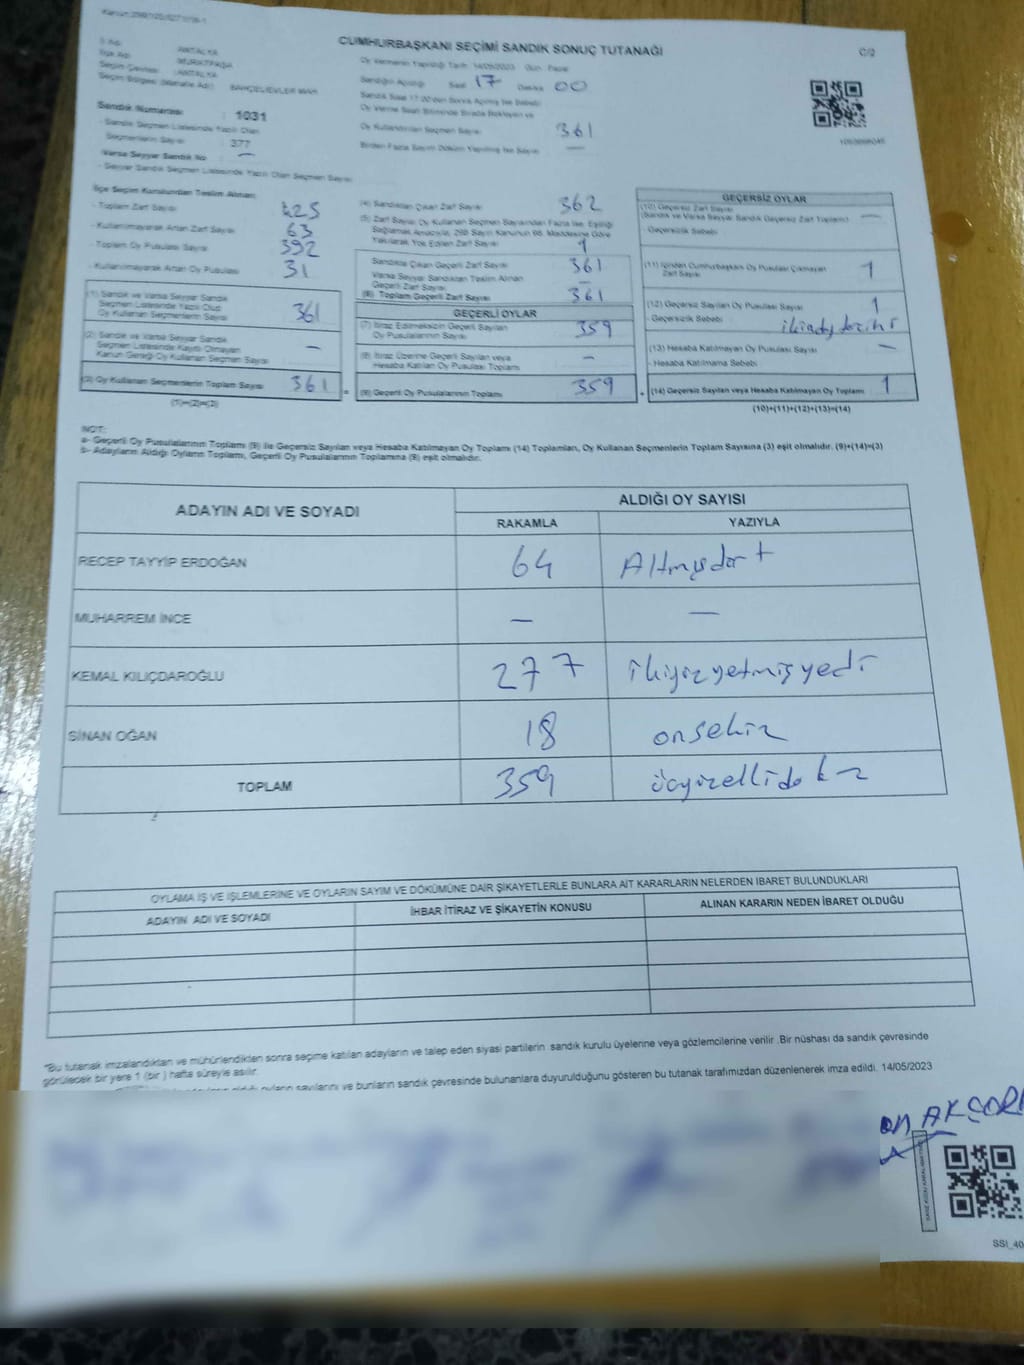 CUMHURBAŞKANI SEÇİMİ SANDIK SONUÇ TUTANAĞI
C/2
İl Adı : ANTALYA
İlçe Adı : MURATPAŞA
Seçim Çevresi : ANTALYA
Seçim Bölgesi (Mahalle Adı) : BAHÇELİEVLER MAH.
Sandık Numarası : 1031
- Sandık Seçmen Listesinde Yazılı Olan
Seçmenlerin Sayısı : 377
Varsa Seyyar Sandık No : —
- Seyyar Sandık Seçmen Listesinde Yazılı Olan Seçmen Sayısı
Oy Vermenin Yapıldığı Tarih : 14/05/2023 Gün : Pazar
Sandığın Açıldığı Saat : 17 Dakika : 00
Oy Kullandırılan Seçmen Sayısı : 361
Birden Fazla Sayım Döküm Yapılmış İse Sayısı : —
İlçe Seçim Kurulundan Teslim Alınan
- Toplam Zarf Sayısı
- Kullanılmayarak Artan Zarf Sayısı 63
- Toplam Oy Pusulası Sayısı 392
- Kullanılmayarak Artan Oy Pusulası 31
(1) Sandık ve Varsa Seyyar Sandık
Seçmen Listesinde Yazılı Olup
Oy Kullanan Seçmenlerin Sayısı 361
(2) Sandık ve Varsa Seyyar Sandık
Seçmen Listesinde Kayıtlı Olmayan
Kanun Gereği Oy Kullanan Seçmen Sayısı —
(3) Oy Kullanan Seçmenlerin Toplam Sayısı 361
(1)+(2)=(3)
(4) Sandıktan Çıkan Zarf Sayısı 362
(5) Zarf Sayısı Oy Kullanan Seçmen Sayısından Fazla İse, Eşitliği
Sağlamak Amacıyla, 298 Sayılı Kanunun 98. Maddesine Göre
Yakılarak Yok Edilen Zarf Sayısı 1
Sandıkta Çıkan Geçerli Zarf Sayısı 361
Varsa Seyyar Sandıktan Teslim Alınan
Geçerli Zarf Sayısı —
(6) Toplam Geçerli Zarf Sayısı 361
GEÇERLİ OYLAR
(7) İtiraz Edilmeksizin Geçerli Sayılan
Oy Pusulalarının Sayısı 359
(8) İtiraz Üzerine Geçerli Sayılan veya
Hesaba Katılan Oy Pusulası Toplamı —
(9) Geçerli Oy Pusulalarının Toplamı 359
GEÇERSİZ OYLAR
(10) Geçersiz Zarf Sayısı
(Sandık ve Varsa Seyyar Sandık Geçersiz Zarf Toplamı) —
- Geçersizlik Sebebi
(11) İçinden Cumhurbaşkanı Oy Pusulası Çıkmayan
Zarf Sayısı 1
(12) Geçersiz Sayılan Oy Pusulası Sayısı 1
- Geçersizlik Sebebi :
(13) Hesaba Katılmayan Oy Pusulası Sayısı —
- Hesaba Katılmama Sebebi :
(14) Geçersiz Sayılan veya Hesaba Katılmayan Oy Toplamı 1
(10)+(11)+(12)+(13)=(14)
NOT:
a- Geçerli Oy Pusulalarının Toplamı (9) ile Geçersiz Sayılan veya Hesaba Katılmayan Oy Toplamı (14) Toplamları, Oy Kullanan Seçmenlerin Toplam Sayısına (3) eşit olmalıdır. (9)+(14)=(3)
b- Adayların Aldığı Oyların Toplamı, Geçerli Oy Pusulalarının Toplamına (9) eşit olmalıdır.
ADAYIN ADI VE SOYADI
ALDIĞI OY SAYISI
RAKAMLA YAZIYLA
RECEP TAYYİP ERDOĞAN 64 Altmışdört
MUHARREM İNCE — —
KEMAL KILIÇDAROĞLU 277 ikiyüzyetmişyedi
SİNAN OĞAN 18 onsekiz
TOPLAM 359
OYLAMA İŞ VE İŞLEMLERİNE VE OYLARIN SAYIM VE DÖKÜMÜNE DAİR ŞİKAYETLERLE BUNLARA AİT KARARLARIN NELERDEN İBARET BULUNDUKLARI
ADAYIN ADI VE SOYADI
İHBAR İTİRAZ VE ŞİKAYETİN KONUSU
ALINAN KARARIN NEDEN İBARET OLDUĞU
*Bu tutanak imzalandıktan ve mühürlendikten sonra seçime katılan adayların ve talep eden siyasi partilerin sandık kurulu üyelerine veya gözlemcilerine verilir .Bir nüshası da sandık çevresinde
görülecek bir yere 1 (bir ) hafta süreyle asılır.
oyların sayılarını ve bunların sandık çevresinde bulunanlara duyurulduğunu gösteren bu tutanak tarafımızdan düzenlenerek imza edildi. 14/05/2023
SSI_40